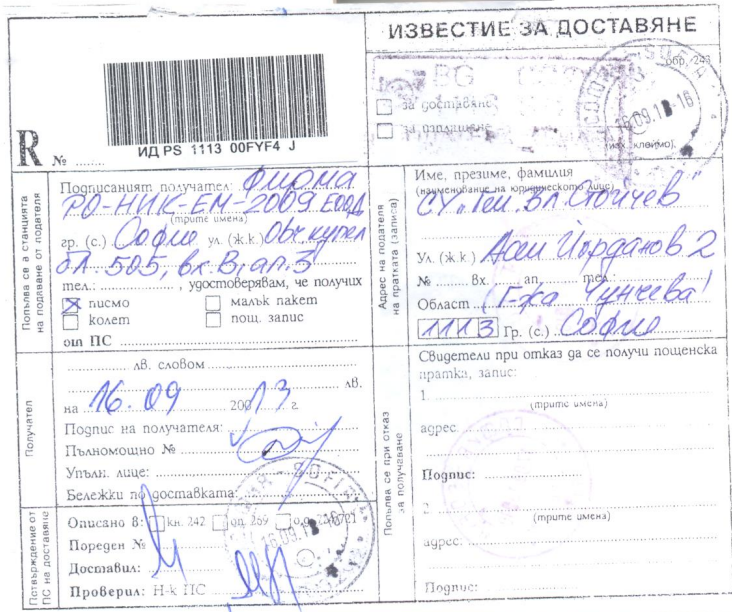 ИЗВЕСТИЕ ЗА ДОСТАВЯНЕ
обр. 243
BG
за доставяне
за изплащане
(изх. клеймо)
R № ........
ИД PS 1113 00FYF4 J
Попълва се в станцията на подаване от подателя
Подписаният получател: Фирма
РО-НИК-ЕМ-2009 ЕООД
(трите имена)
гр. (с.) София ул. (ж.к.) Овч. купел
бл. 505, вх. В, ап. 3
тел.: , удостоверявам, че получих
писмо малък пакет
колет пощ. запис
от ПС
Адрес на подателя на пратката (записа)
Име, презиме, фамилия
(наименование на юридическото лице)
СУ "Ген. Вл. Стойчев"
Ул. (ж.к.) Асен Йорданов 2
№ вх. ап. тел.
Област (Г-жа Чунчева)
1113 Гр. (с.) София
Получател
лв. словом
лв.
на 16.09 200 13 г.
Подпис на получателя:
Пълномощно №
Упълн. лице:
Бележки по доставката:
Попълва се при отказ за получаване
Свидетели при отказ да се получи пощенска
пратка, запис:
1.
(трите имена)
адрес:
Подпис:
2.
(трите имена)
адрес:
Подпис:
Потвърждение от ПС на доставяне
Описано в: кн. 242 оп. 269
Пореден №
Доставил:
Проверил: Н-к ПС
16.09.13-16